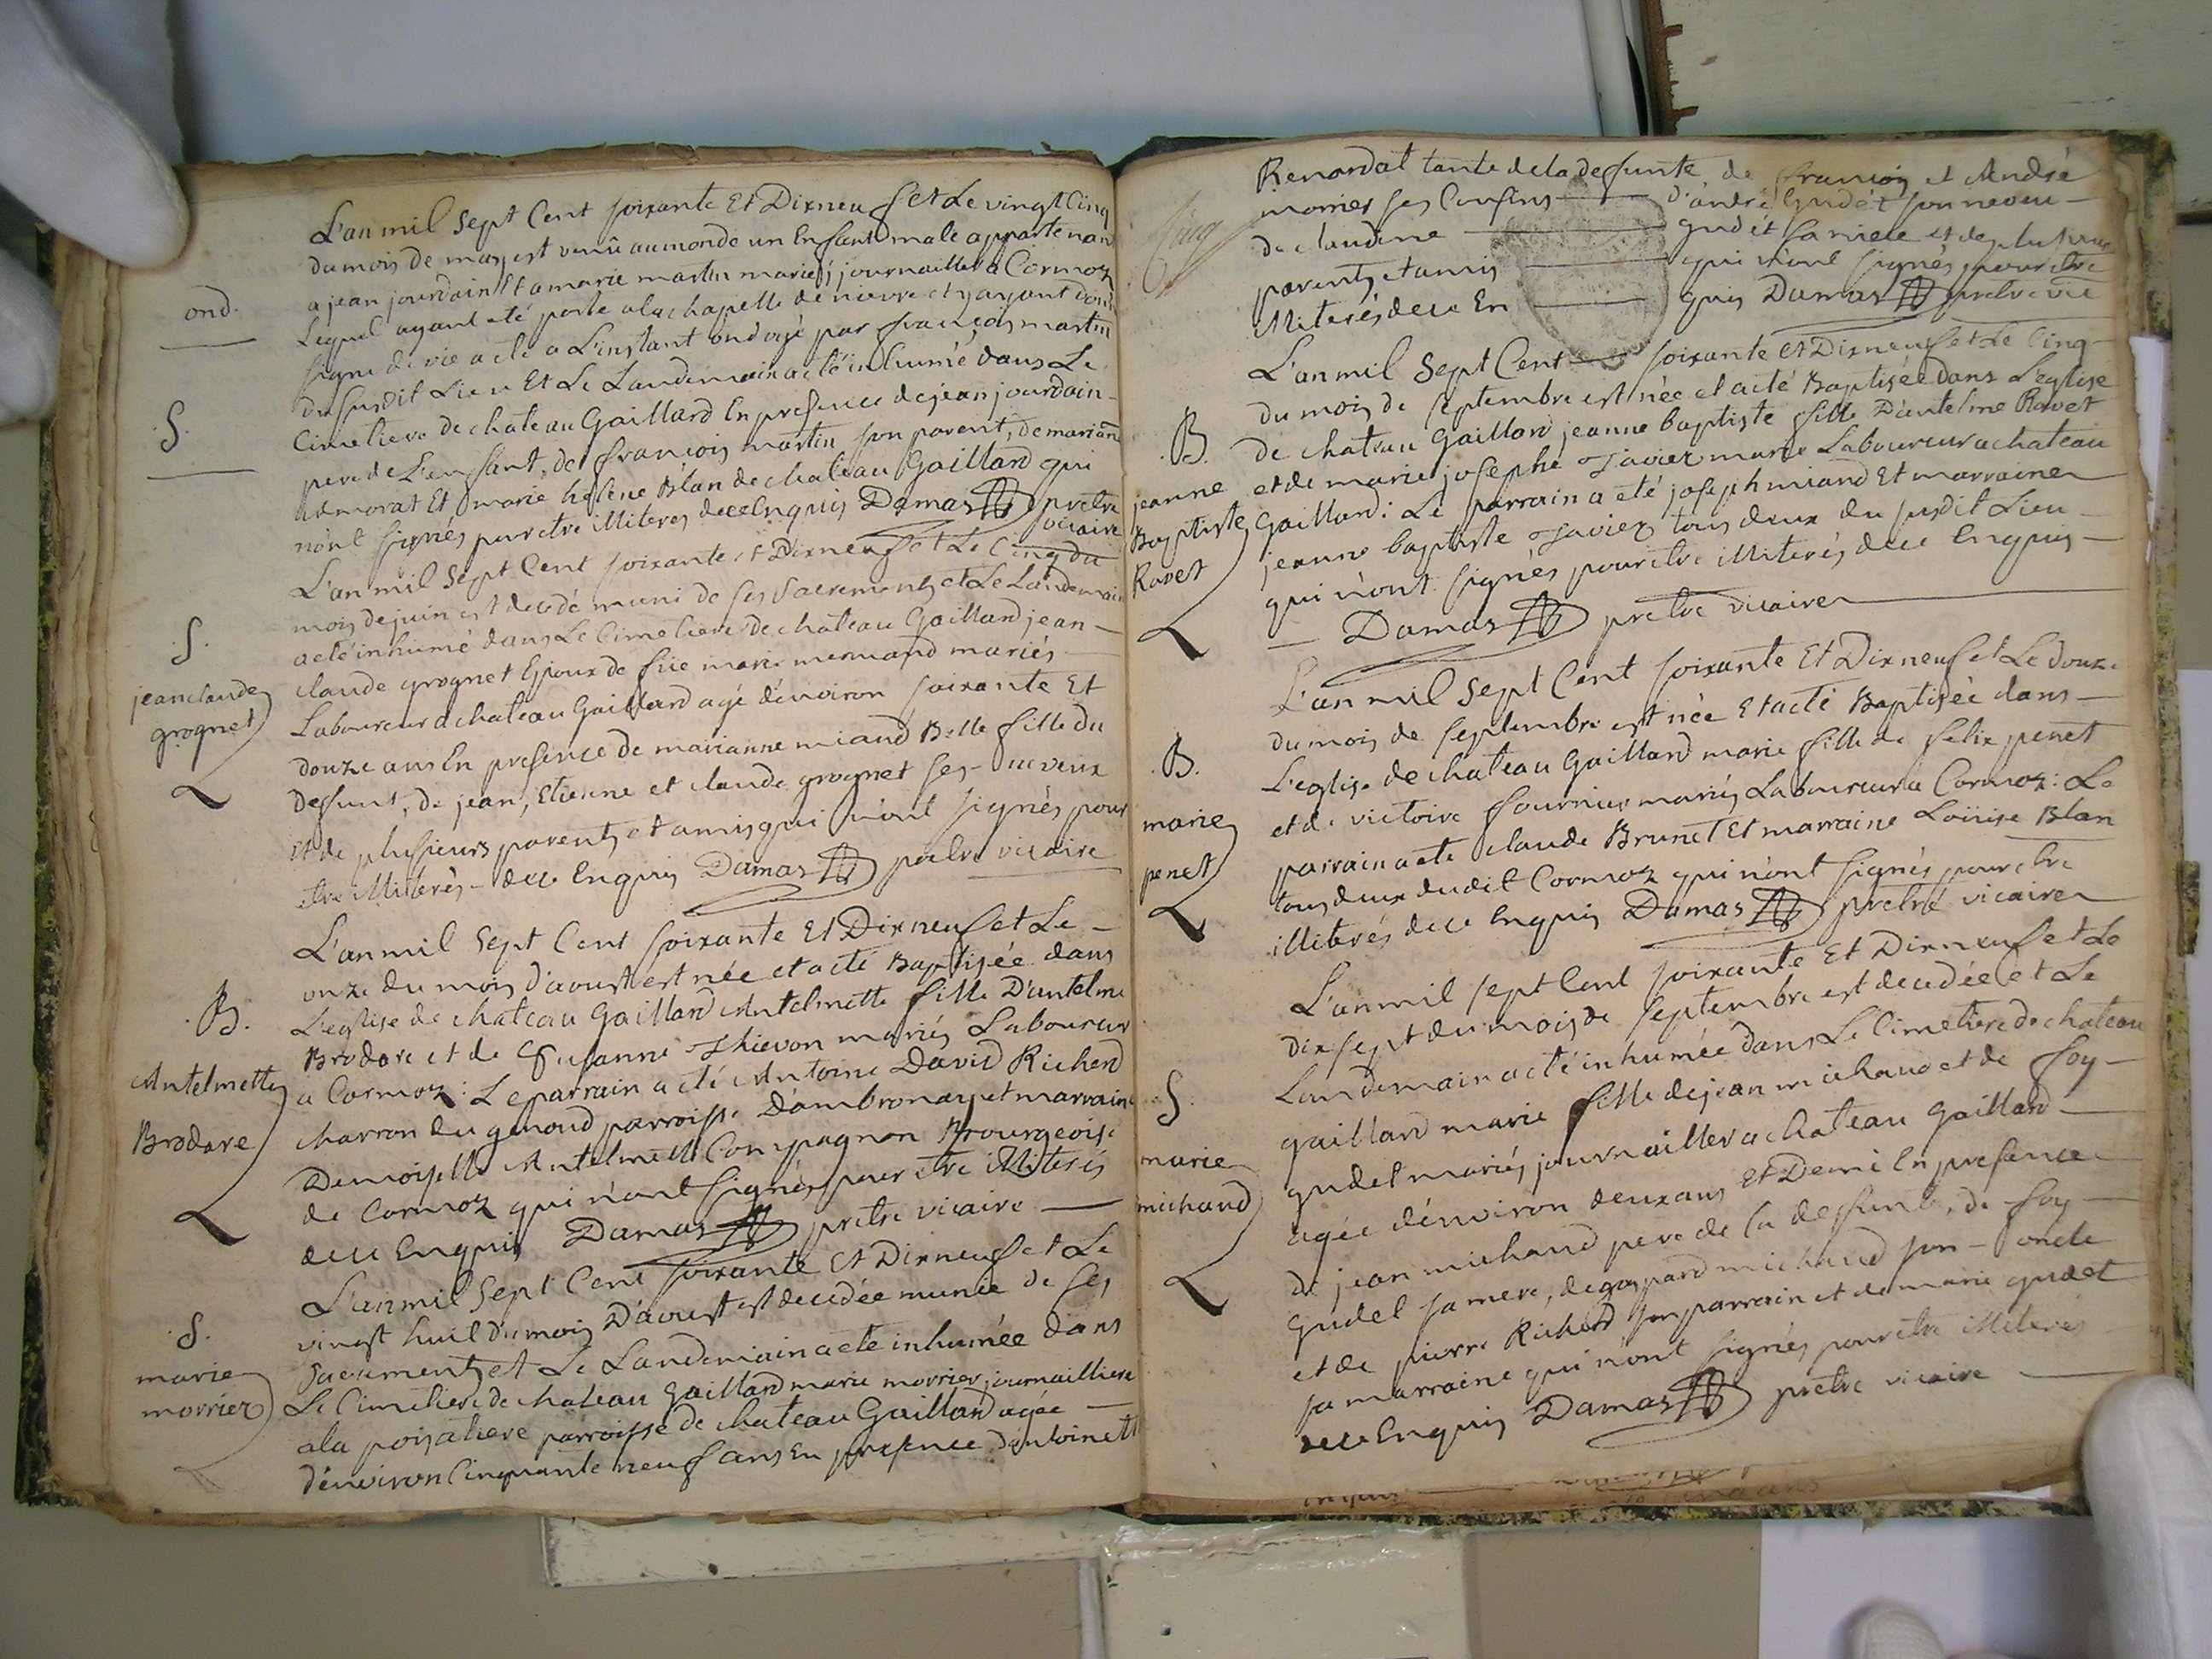 L'an mil Sept Cent soixante Et Dixneuf et Le vingt Cinq
du mois de may est venû au monde un Enfant male appartenan
a jean jourdain Et a marie martin mariés journaillier a Cormoz
ond.
Lequel ayant eté porté a la chapelle de nievre et y ayant donné
signe de vie a eté a L'instant ondoyé par françois martin
du susdit Lieu Et Le Landemain a eté inhumé dans Le
S.
Cimetiere de chateau Gaillard En presence de jean jourdain
pere de L'enfant, de françois martin son parent, de mariane
admorat Et marie helene Blan de chateau Gaillard qui
n'ont signés pour etre illiterés de ce Enquis Damas prêtre
vicaire
L'an mil Sept Cent soixante et Dixneuf et Le Cinq du
mois de juin est decedé muni de ses Sacrements et Le Landemain
S.
a eté inhumé dans Le Cimetiere de chateau Gaillard jean
jean claude
claude grognet Epoux de füe marie mermand mariés
grognet
Laboureur a chateau Gaillard agé d'environ soixante Et
douze ans En presence de marianne miand Belle fille du
deffunt, de jean, Etienne et claude grognet ses neveux
et de plusieurs parents et amis qui n'ont signés pour
etre illiterés de ce Enquis Damas prêtre vicaire
L'an mil Sept Cent soixante Et Dixneuf et Le
onze du mois d'aoust est née et a eté Baptisée dans
B.
L'eglise de chateau Gaillard Antelmette fille D'antelme
Brodare et de Susanne Thievon mariés Laboureur
Antelmette
a Cormoz : Le parrain a eté Antoine David Richerd
Brodare
charron du genoud parroisse d'ambronay et marraine
Demoiselle Antelmette Compagnon Bourgeoise
de Cormoz qui n'ont signés pour etre illiterés
de ce Enquis Damas prêtre vicaire
L'an mil Sept Cent soixante Et Dixneuf et Le
vingt huit du mois D'aoust est decedée munie de ses
S.
Sacrements et Le Landemain a eté inhumée dans
marie
Le Cimetiere de chateau Gaillard marie morrier journailliere
morrier
a la poisatiere parroisse de chateau Gaillard agée
d'environ Cinquante neuf ans En presence d'antoinette
Cinq
Renordat tante de la deffunte de françois et André
morrier ses Cousins d'andré Gudet son neveu
de claudine gudet sa niece et de plusieurs
parents et amis qui n'ont signés pour etre
illiterés de ce En quis Damas prêtre vic
L'an mil Sept Cent soixante Et Dixneuf et Le Cinq
du mois de septembre est née et a eté Baptisée dans L'eglise
B.
de chateau Gaillard jeanne baptiste fille D'antelme Ravet
jeanne
et de marie josephe Tavier mariés Laboureur a chateau
Baptiste
Gaillard : Le parrain a eté joseph miand Et marraine
Ravet
jeanne baptiste Tavier tous deux du susdit Lieu
qui n'ont signés pour etre illiterés de ce Enquis
Damas prêtre vicaire
L'an mil Sept Cent soixante Et Dixneuf et Le douze
du mois de septembre est née Et a eté Baptisée dans
B.
L'eglise de chateau Gaillard marie fille de felix penet
marie
et de victoire fournier mariés Laboureur a Cormoz : Le
penet
parrain a eté claude Brunet Et marraine Loüise Blan
tous deux dudit Cormoz qui n'ont signés pour etre
illiterés de ce Enquis Damas prêtre vicaire
L'an mil sept Cent soixante Et Dixneuf et Le
dix sept du mois de septembre est decedée et Le
Landemain a eté inhumée dans Le Cimetiere de chateau
S.
gaillard marie fille de jean michaud et de foy
marie
gudet mariés journaillier a chateau Gaillard
michaud
agée d'environ deux ans Et Demi En presence
de jean michaud pere de la deffunte, de foy
Gudet sa mere, de gaspard michaud son oncle
et de pierre Richerd son parrain et de marie gudet
sa marraine qui n'ont signés pour etre illiterés
de ce Enquis Damas prêtre vicaire